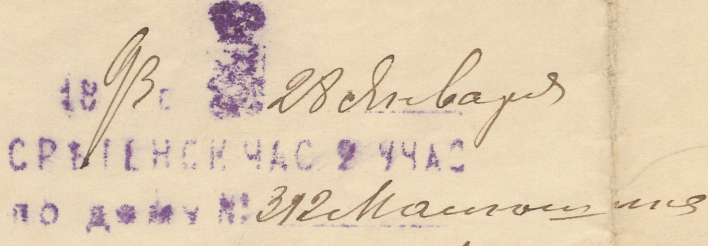 1893 г 28 Января
СРѢТЕНСК ЧАС 2 УЧАС
ПО ДОМУ № 312